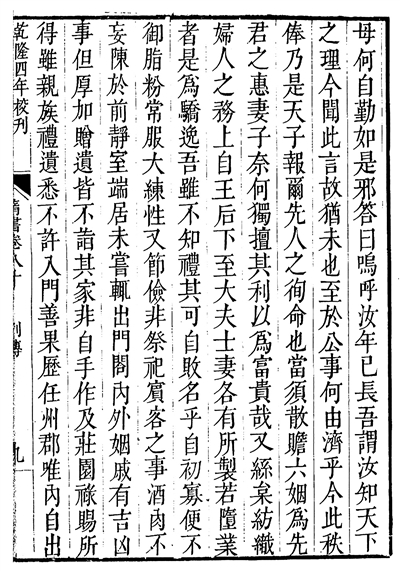 母何自勤如是邪答曰嗚呼汝年已長吾謂汝知天下
之理今聞此言故猶未也至於公事何由濟乎今此秩
俸乃是天子報爾先人之徇命也當須散贍六姻為先
君之惠妻子奈何獨擅其利以為富貴哉又絲枲紡織
婦人之務上自王后下至大夫士妻各有所製若墮業
者是為驕逸吾雖不知禮其可自敗名乎自初寡便不
御脂粉常服大練性又節儉非祭祀賓客之事酒肉不
妄陳於前靜室端居未嘗輒出門閤內外姻戚有吉凶
事但厚加贈遺皆不詣其家非自手作及莊園祿賜所
得雖親族禮遺悉不許入門善果歷任州郡唯內自出
乾隆四年校刊
隋書卷八十 列傳 九